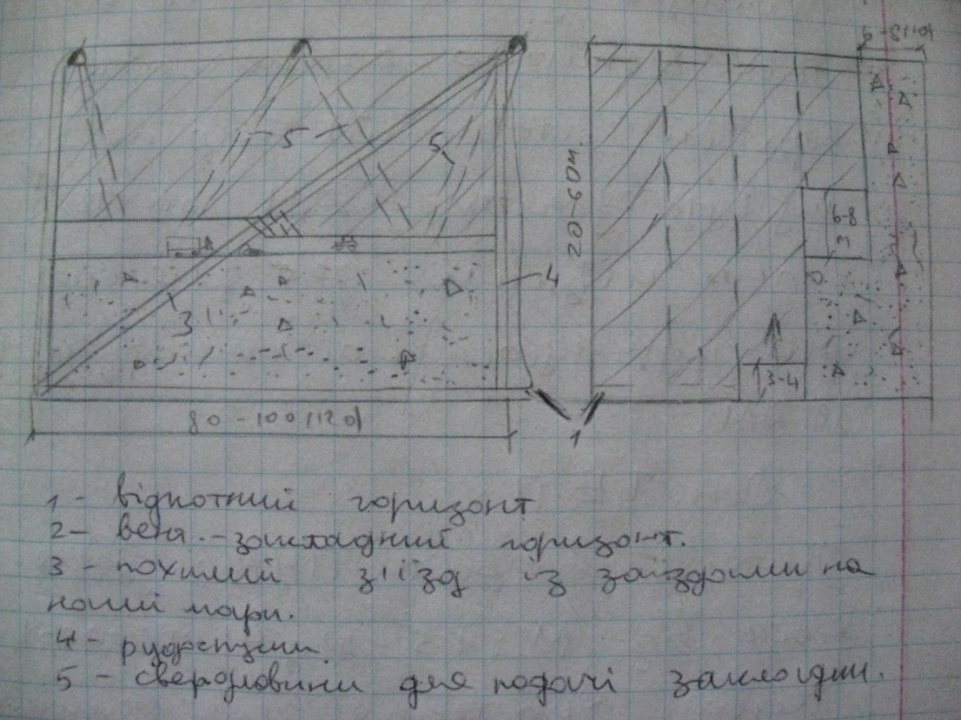 5
5
3
4
1
80-100(120)
20-60м.
6-8
м
3-4
6-8(10)
1 - відкотний горизонт
2 - вент.-закладний горизонт.
3 - похилий з'їзд із заїздами на
нові шари.
4 - рудоспуски
5 - свердловини для подачі закладки.